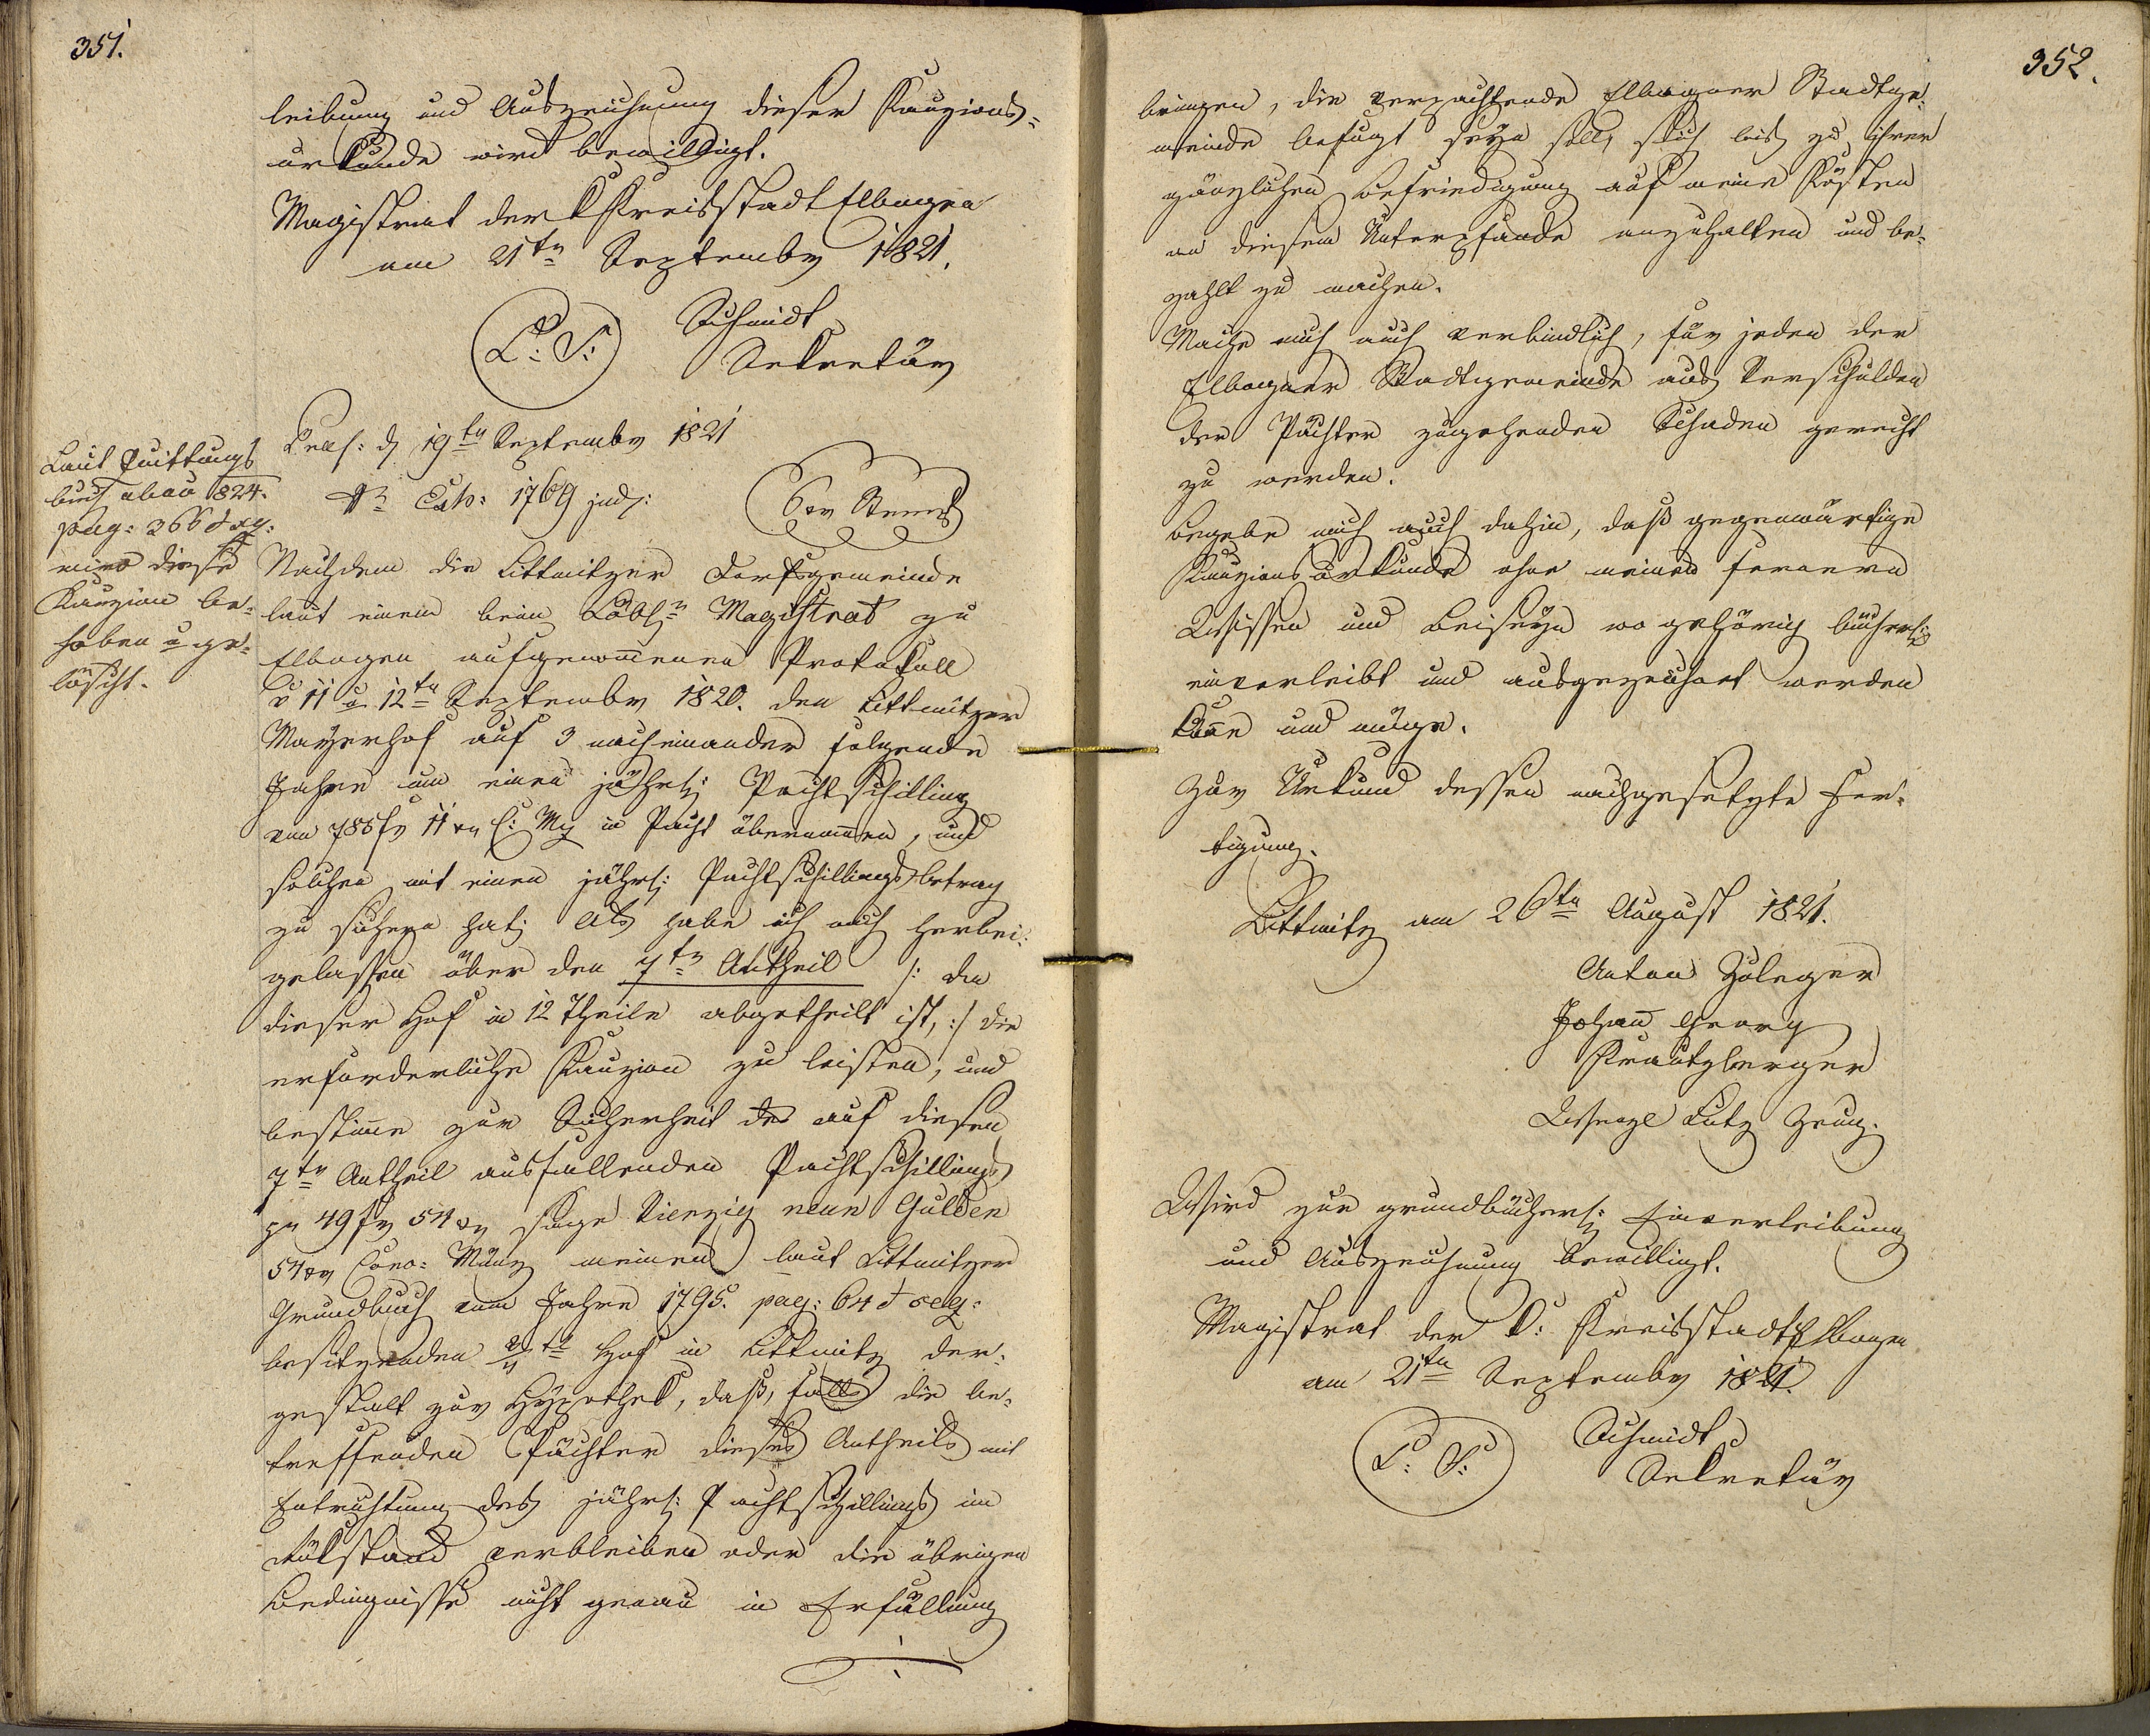 351.
leibung und Auszeichnung dieser Kauzions=
urkunde wird bewilligt.
Magistrat der K Kreisstadt Elbogen
am 21tn Septembr 1821.
L: S:
Schmidt
Sekretär
Laut Quittungs
buch 1824.
pag: 366 & sq:
wird diese
Kauzion be=
hoben u ge=
löscht.
Präs: d 19tn Septembr 1821
Nr Exh: 1769 jud:
Nachdem die Littmitzer Dorfsgemeinde
laut einem beim Löbl: Magistrat zu
Elbogen aufgenommenen Protokoll
v 11 u 12tn Septembr 1820. den Littmitzer
Mayerhof auf 3 nacheinander folgende
Jahre um einen jährl: Pachtschilling
von 785 fr 11 xr C: Mz in Pacht übernommen, und
solchen mit einen jährl: Pachtschillingsbetrag
zu sichern hat; Als habe ich mich herbei=
gelassen über den 7tn Antheil /: da
dieser Hof in 12 Theile abgetheilt ist, :/ die
erforderliche Kauzion zu leisten, und
bestimme zur Sicherheit des auf diesen
7tn Antheil ausfallenden Pachtschillings
pr 49 fr 54 xr sage Vierzig neun Gulden
54 xr Conv: Münz meinen laut Littmitzer
Grundbuch vom Jahre 1795. pag: 64 & seq:
besitzenden Hof in Littmitz der=
gestalt zur Hypothek, daß, falls die be=
treffenden Pächter dieses Antheils mit
Entrichtung des jährl: Pachtschillings im
Rükstand verbleiben oder die übrigen
Bedingnisse nicht genau in Erfüllung
352.
bringen, die verpachtende Elbogner Stadtge=
meinde befugt seyn soll, sich bis zu ihrer
gänzlichen Befriedigung auf meine Kösten
an diesem Unterpfande anzuhalten und be=
zahlt zu machen.
Mache mich auch verbindlich, für jeden der
Elbogner Stadtgemeinde aus Verschulden
der Pächter zugehenden Schaden gerecht
zu werden.
Begebe mich auch dahin, daß gegenwärtige
Kauzions urkunde ohne meinen fernern
Wissen und Beiseyn wo gehörig bücherl:
einverleibt und ausgezeichnet werden
könne und möge.
Zur Urkund dessen nachgesetzte Fer=
tigung.
Littmitz am 26tn August 1821.
Anton Zuleger
Johann Georg
Krautzberger
Wenzl Lutz Zeug.
Wird zur grundbücherl: Einverleibung
und Auszeichnung bewilligt.
Magistrat der K: Kreisstadt Elbogen
am 21tn Septembr 1821.
L: S:
Schmidt
Sekretär